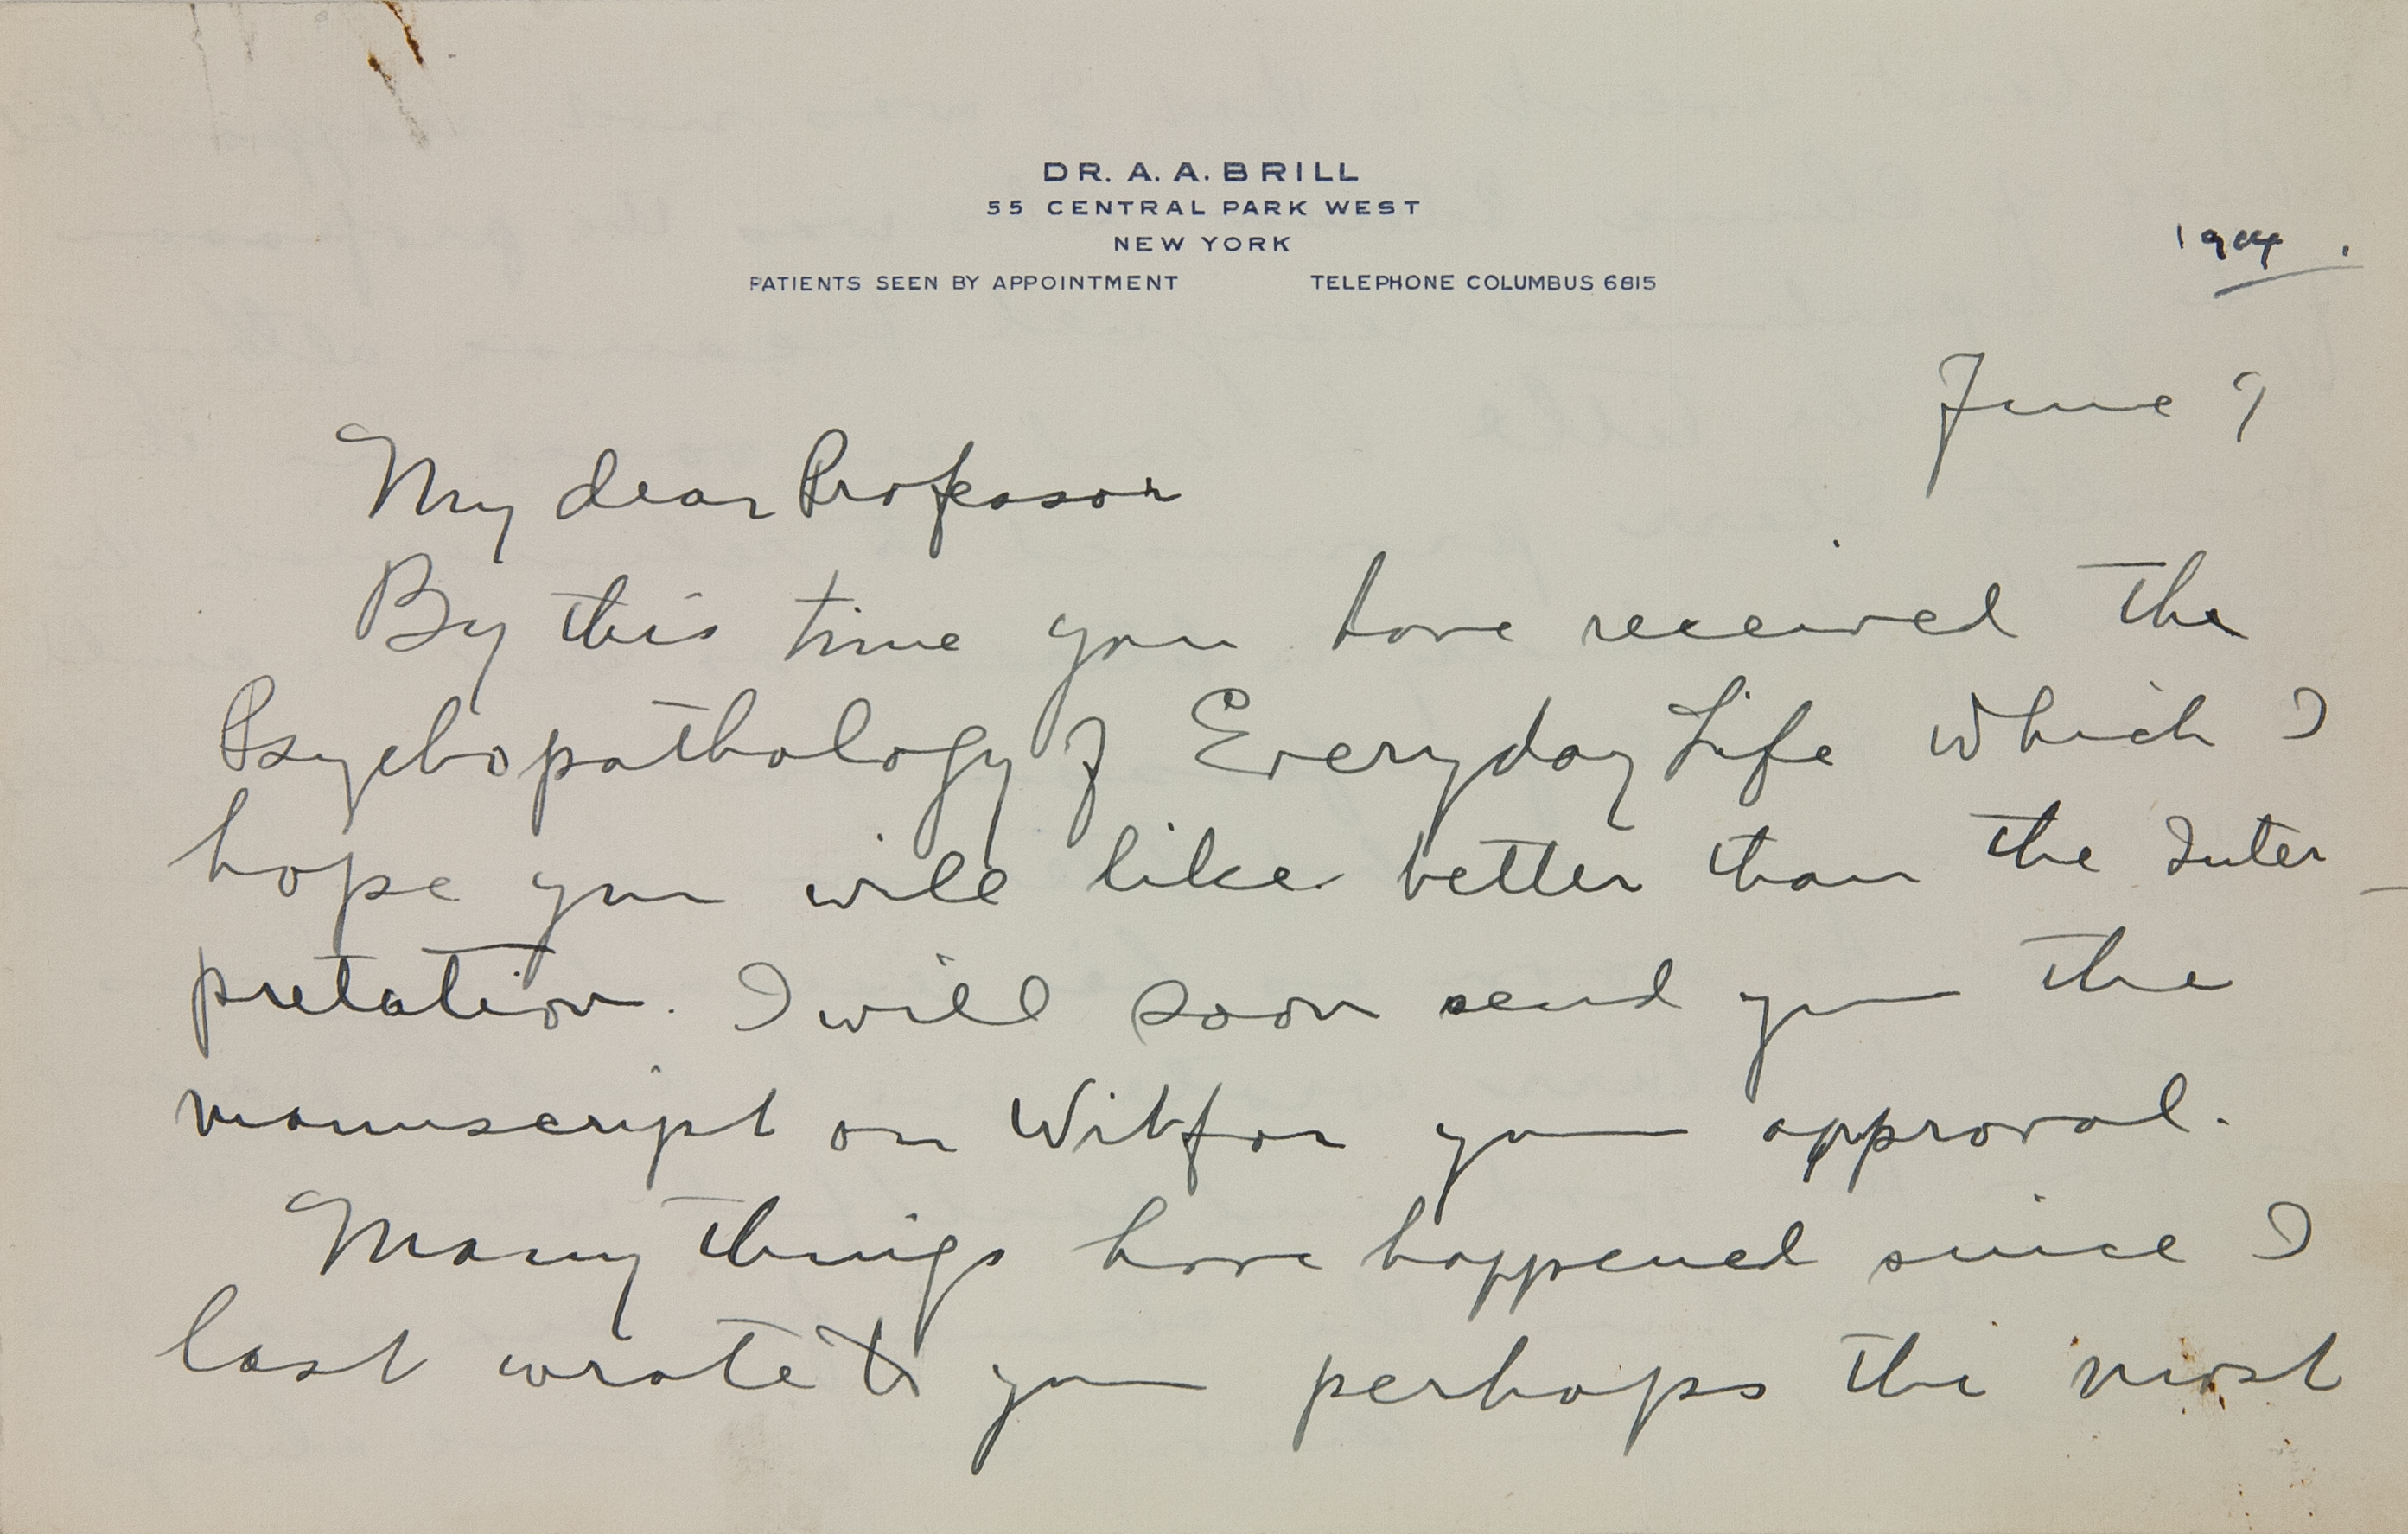 DR. A. A. BRILL
55 CENTRAL PARK WEST
NEW YORK
PATIENTS SEEN BY APPOINTMENT TELEPHONE COLUMBUS 6815
June 9
My dear Professor
By this time you have received the
Psychopathology of Everyday Life which I
hope you will like better than the Inter-
pretation. I will soon send you the
manuscript on Wit for your approval.
Many things have happened since I
last wrote to you perhaps the most